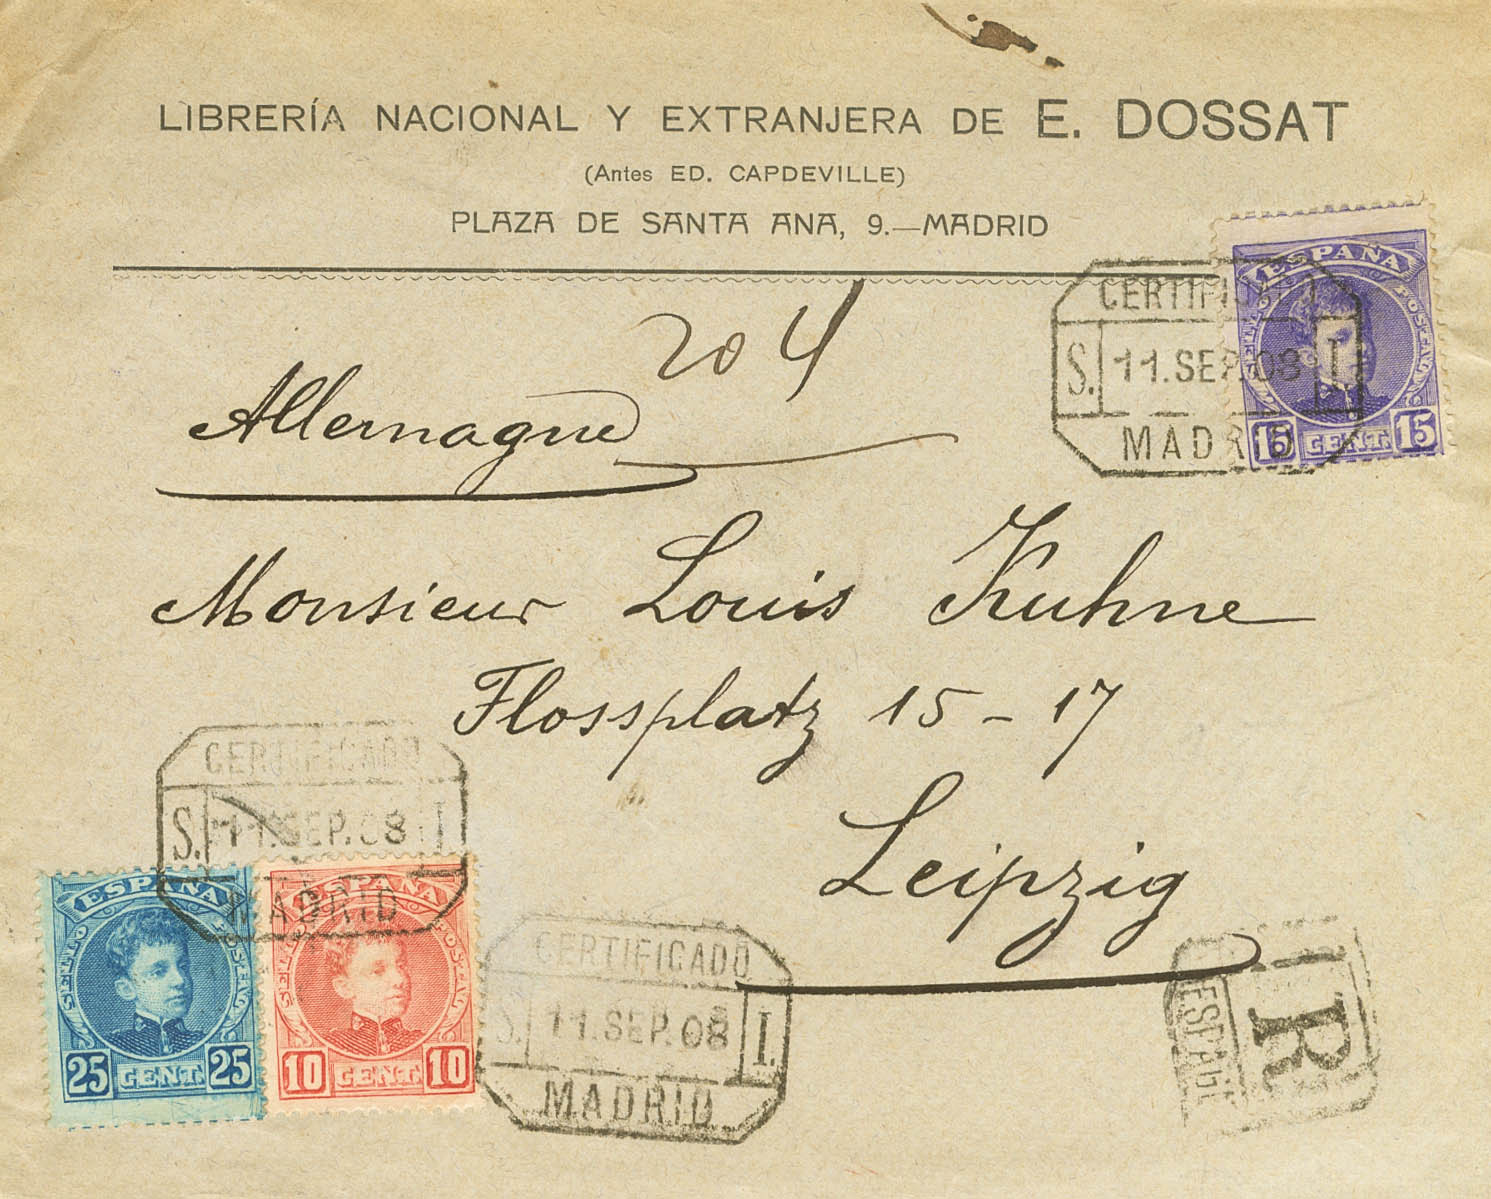 LIBRERÍA NACIONAL Y EXTRANJERA DE E. DOSSAT
(Antes ED. CAPDEVILLE)
PLAZA DE SANTA ANA, 9.—MADRID
ESPAÑA
15 CENT. 15
CERTIFICADO
S. 11.SEP.08 I.
MADRID
204
Allemagne
Monsieur Louis Kuhne
Flossplatz 15-17
Leipzig
CERTIFICADO
S. 11.SEP.08 I.
MADRID
ESPAÑA
25 CENT. 25
ESPAÑA
10 CENT. 10
CERTIFICADO
S. 11.SEP.08 I.
MADRID
R